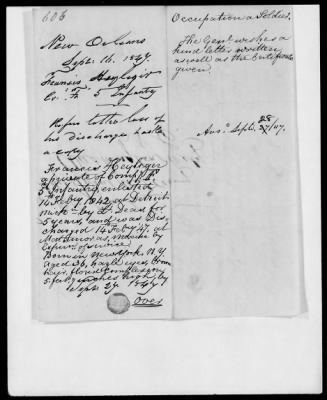 606
New Orleans
Sept. 16. 1847.
Francis Heyliger
Co. "F" 5 Infantry
Refers to the loss of
his discharge & asks
a copy
Francis Heyliger
a private of Comp "F"
5th Infantry, enlisted
14 Feby 1842, at Detroit
Mich by Lt Deas for
5 years, and was Dis-
charged 14 Feby 47, at
Matamoras, Mexico by
Expn of service
Born in New York N.Y
aged 36, hazle eyes, brown
hair, florid complexion
5 feet inches high, by
Sept. 27. 1847
Over
Occupation a Soldier.
The Genl wishes a
kind letter written
as well as the Certificate
given
Ansd Sept. 28/47.